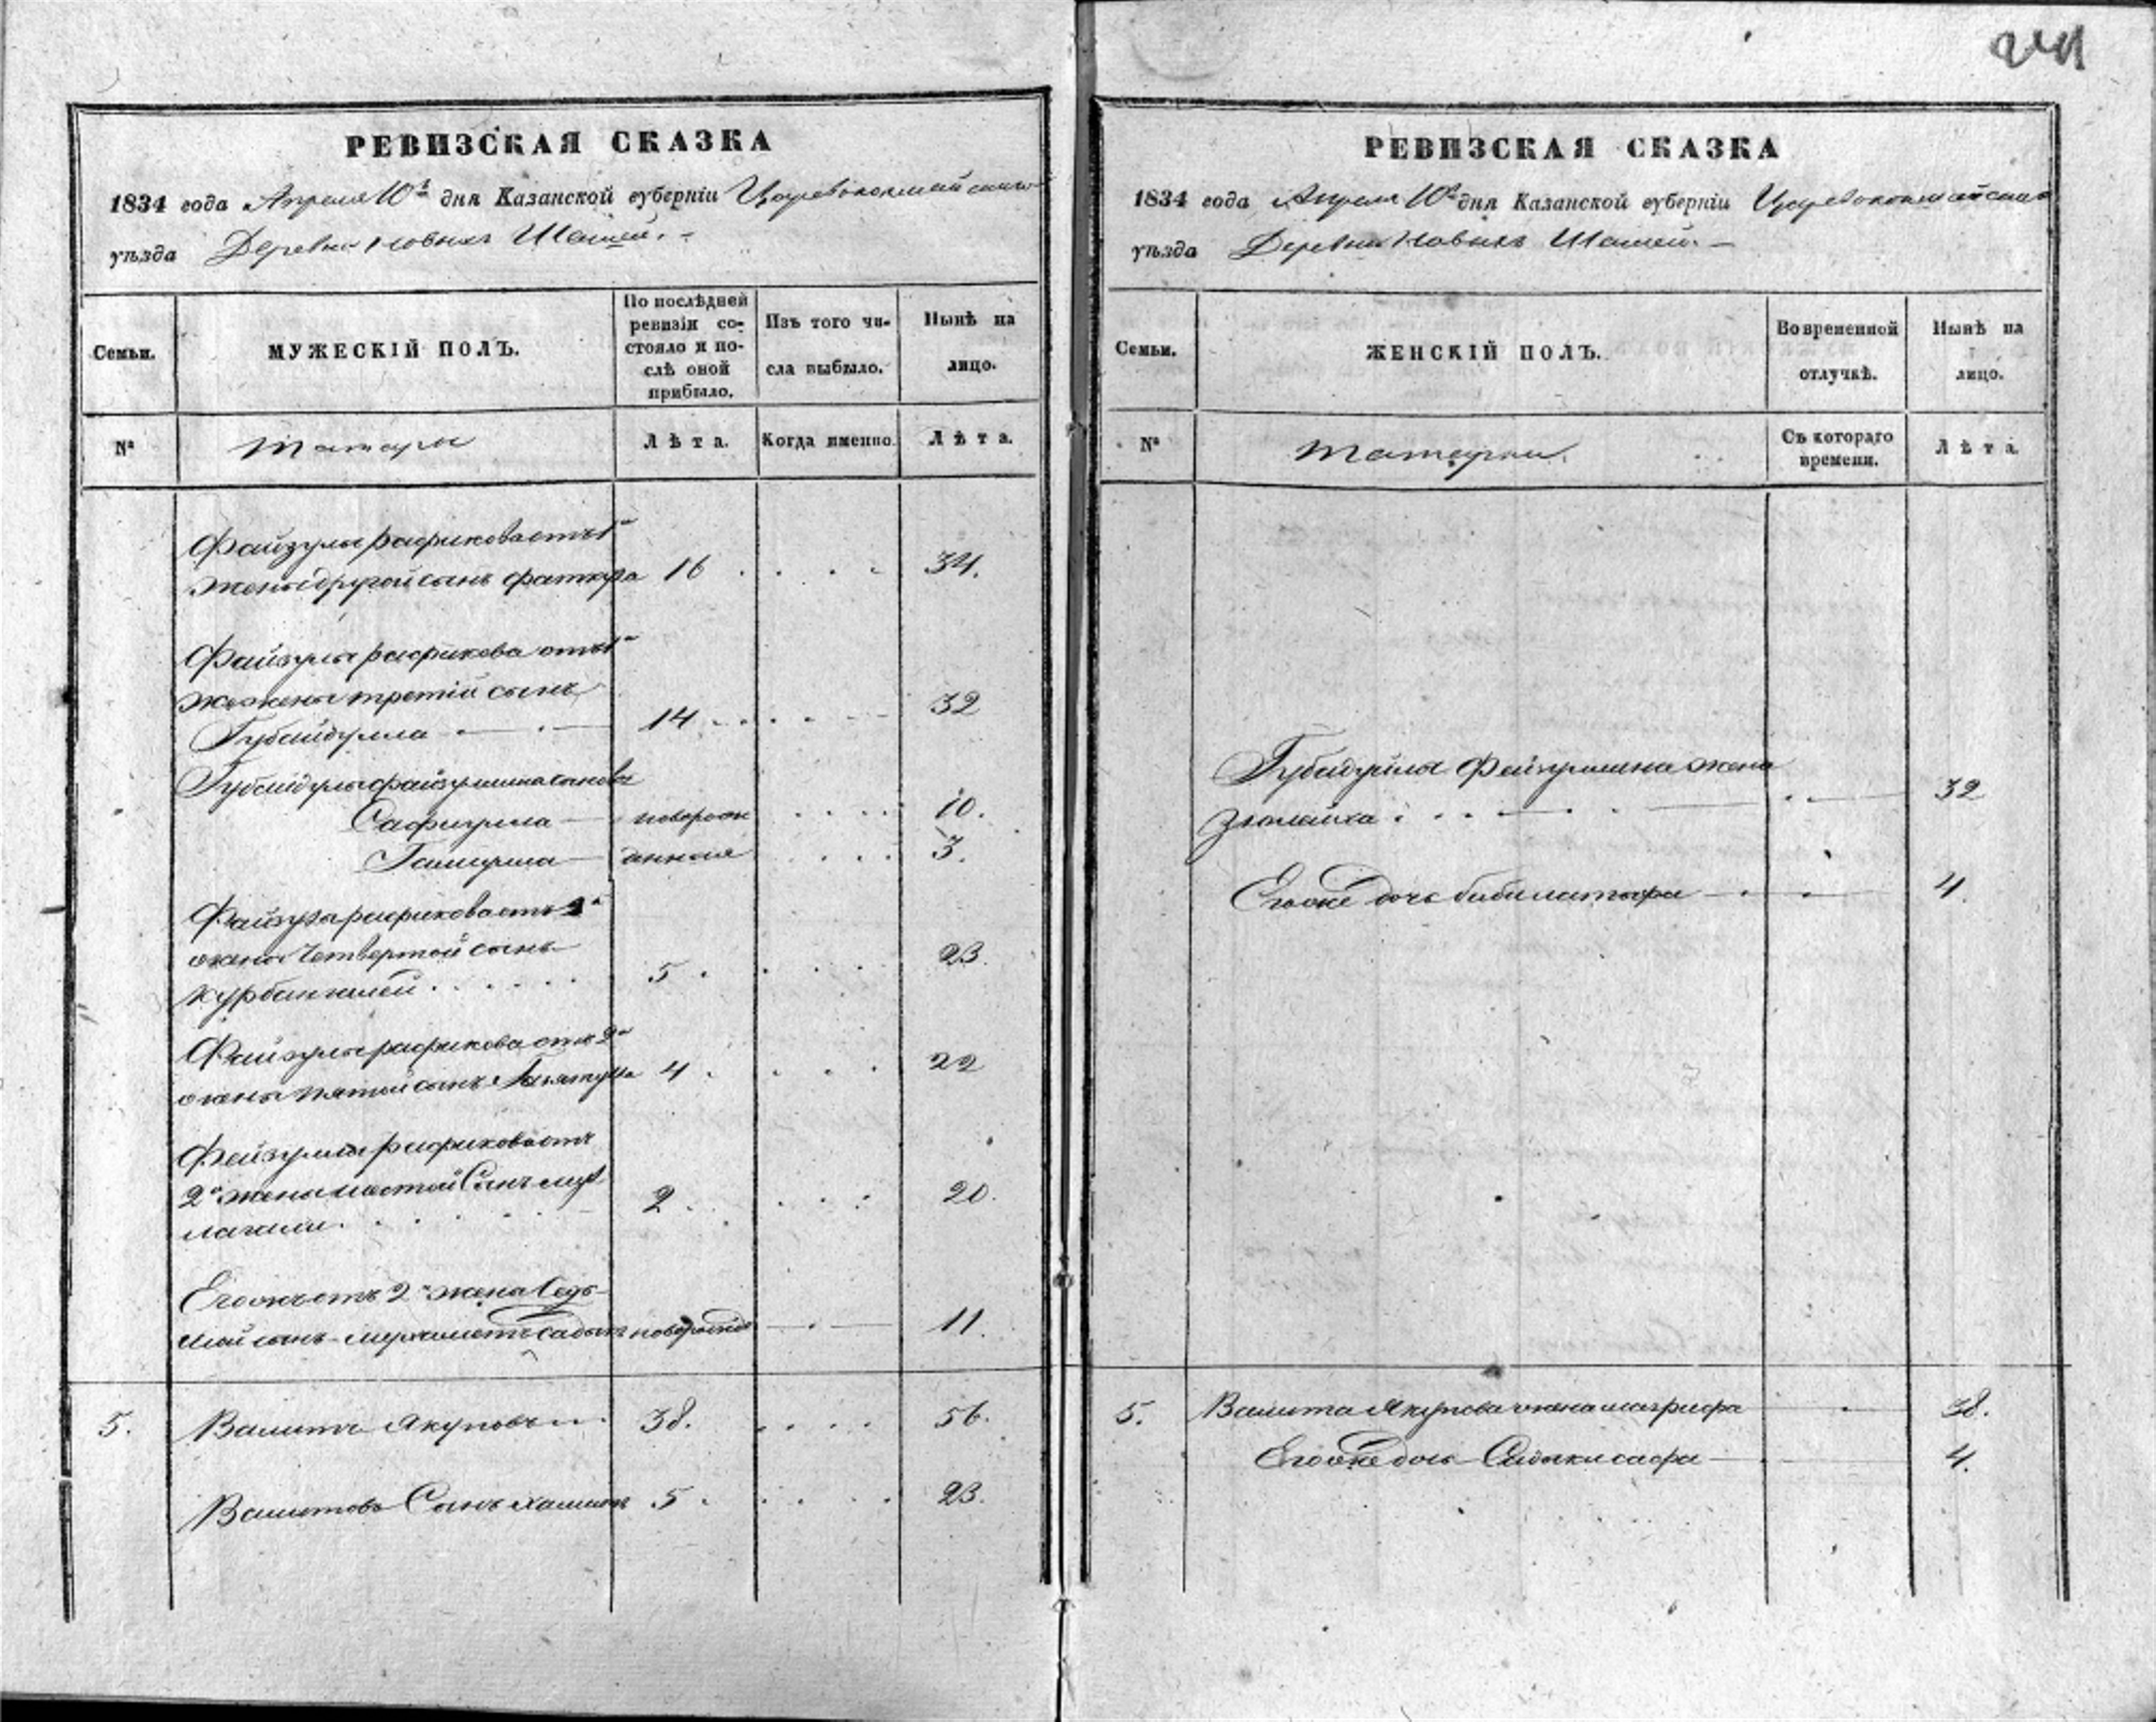 241
РЕВИЗСКАЯ СКАЗКА
1834 года Апреля 10го дня Казанской губерніи Царевококшайскаго
уѣзда Деревни Новыхъ Шашей.
Семьи.
МУЖЕСКІЙ ПОЛЪ.
По послѣдней ревизіи состояло и послѣ оной прибыло.
Изъ того числа выбыло.
Нынѣ на лицо.
№
Татары
Лѣта.
Когда именно.
Лѣта.
Файзулы рафикова отъ 1й
жены другой сынъ фаткула 16 34.
Файзулы рафикова отъ 1й
же жены третій сынъ
Губайдулла 14 32
Губайдулы файзуллина сыновья
Сафиулла новорож 10.
Галиулла денные 3.
Файзулы рафикова отъ 2й
жены четвертой сынъ
курбангалей 5 23.
Файзулы рафикова отъ 2й
жены пятой сынъ 4 22
Фейзуллы рафикова отъ
2й жены шестой Сынъ
2 20.
Его жъ отъ 2й жены Седь-
мой сынъ мухаметъ садыкъ новорожден 11.
5. Валитъ Якуповъ 38. 56.
Валитовъ Сынъ халитъ 5 23.
РЕВИЗСКАЯ СКАЗКА
1834 года Апреля 10го дня Казанской губерніи Царевококшайскаго
уѣзда Деревни Новыхъ Шашей.
Семьи.
ЖЕНСКІЙ ПОЛЪ.
Во временной отлучкѣ.
Нынѣ на лицо.
№
Татарки
Съ котораго времени.
Лѣта.
Губайдуллы Фейзуллина жена
Зюлейха 32
Его же дочь бибилатыфа 4.
5. Валита Якупова жена магруфа 38.
Его же дочь Садыки сафа 4.